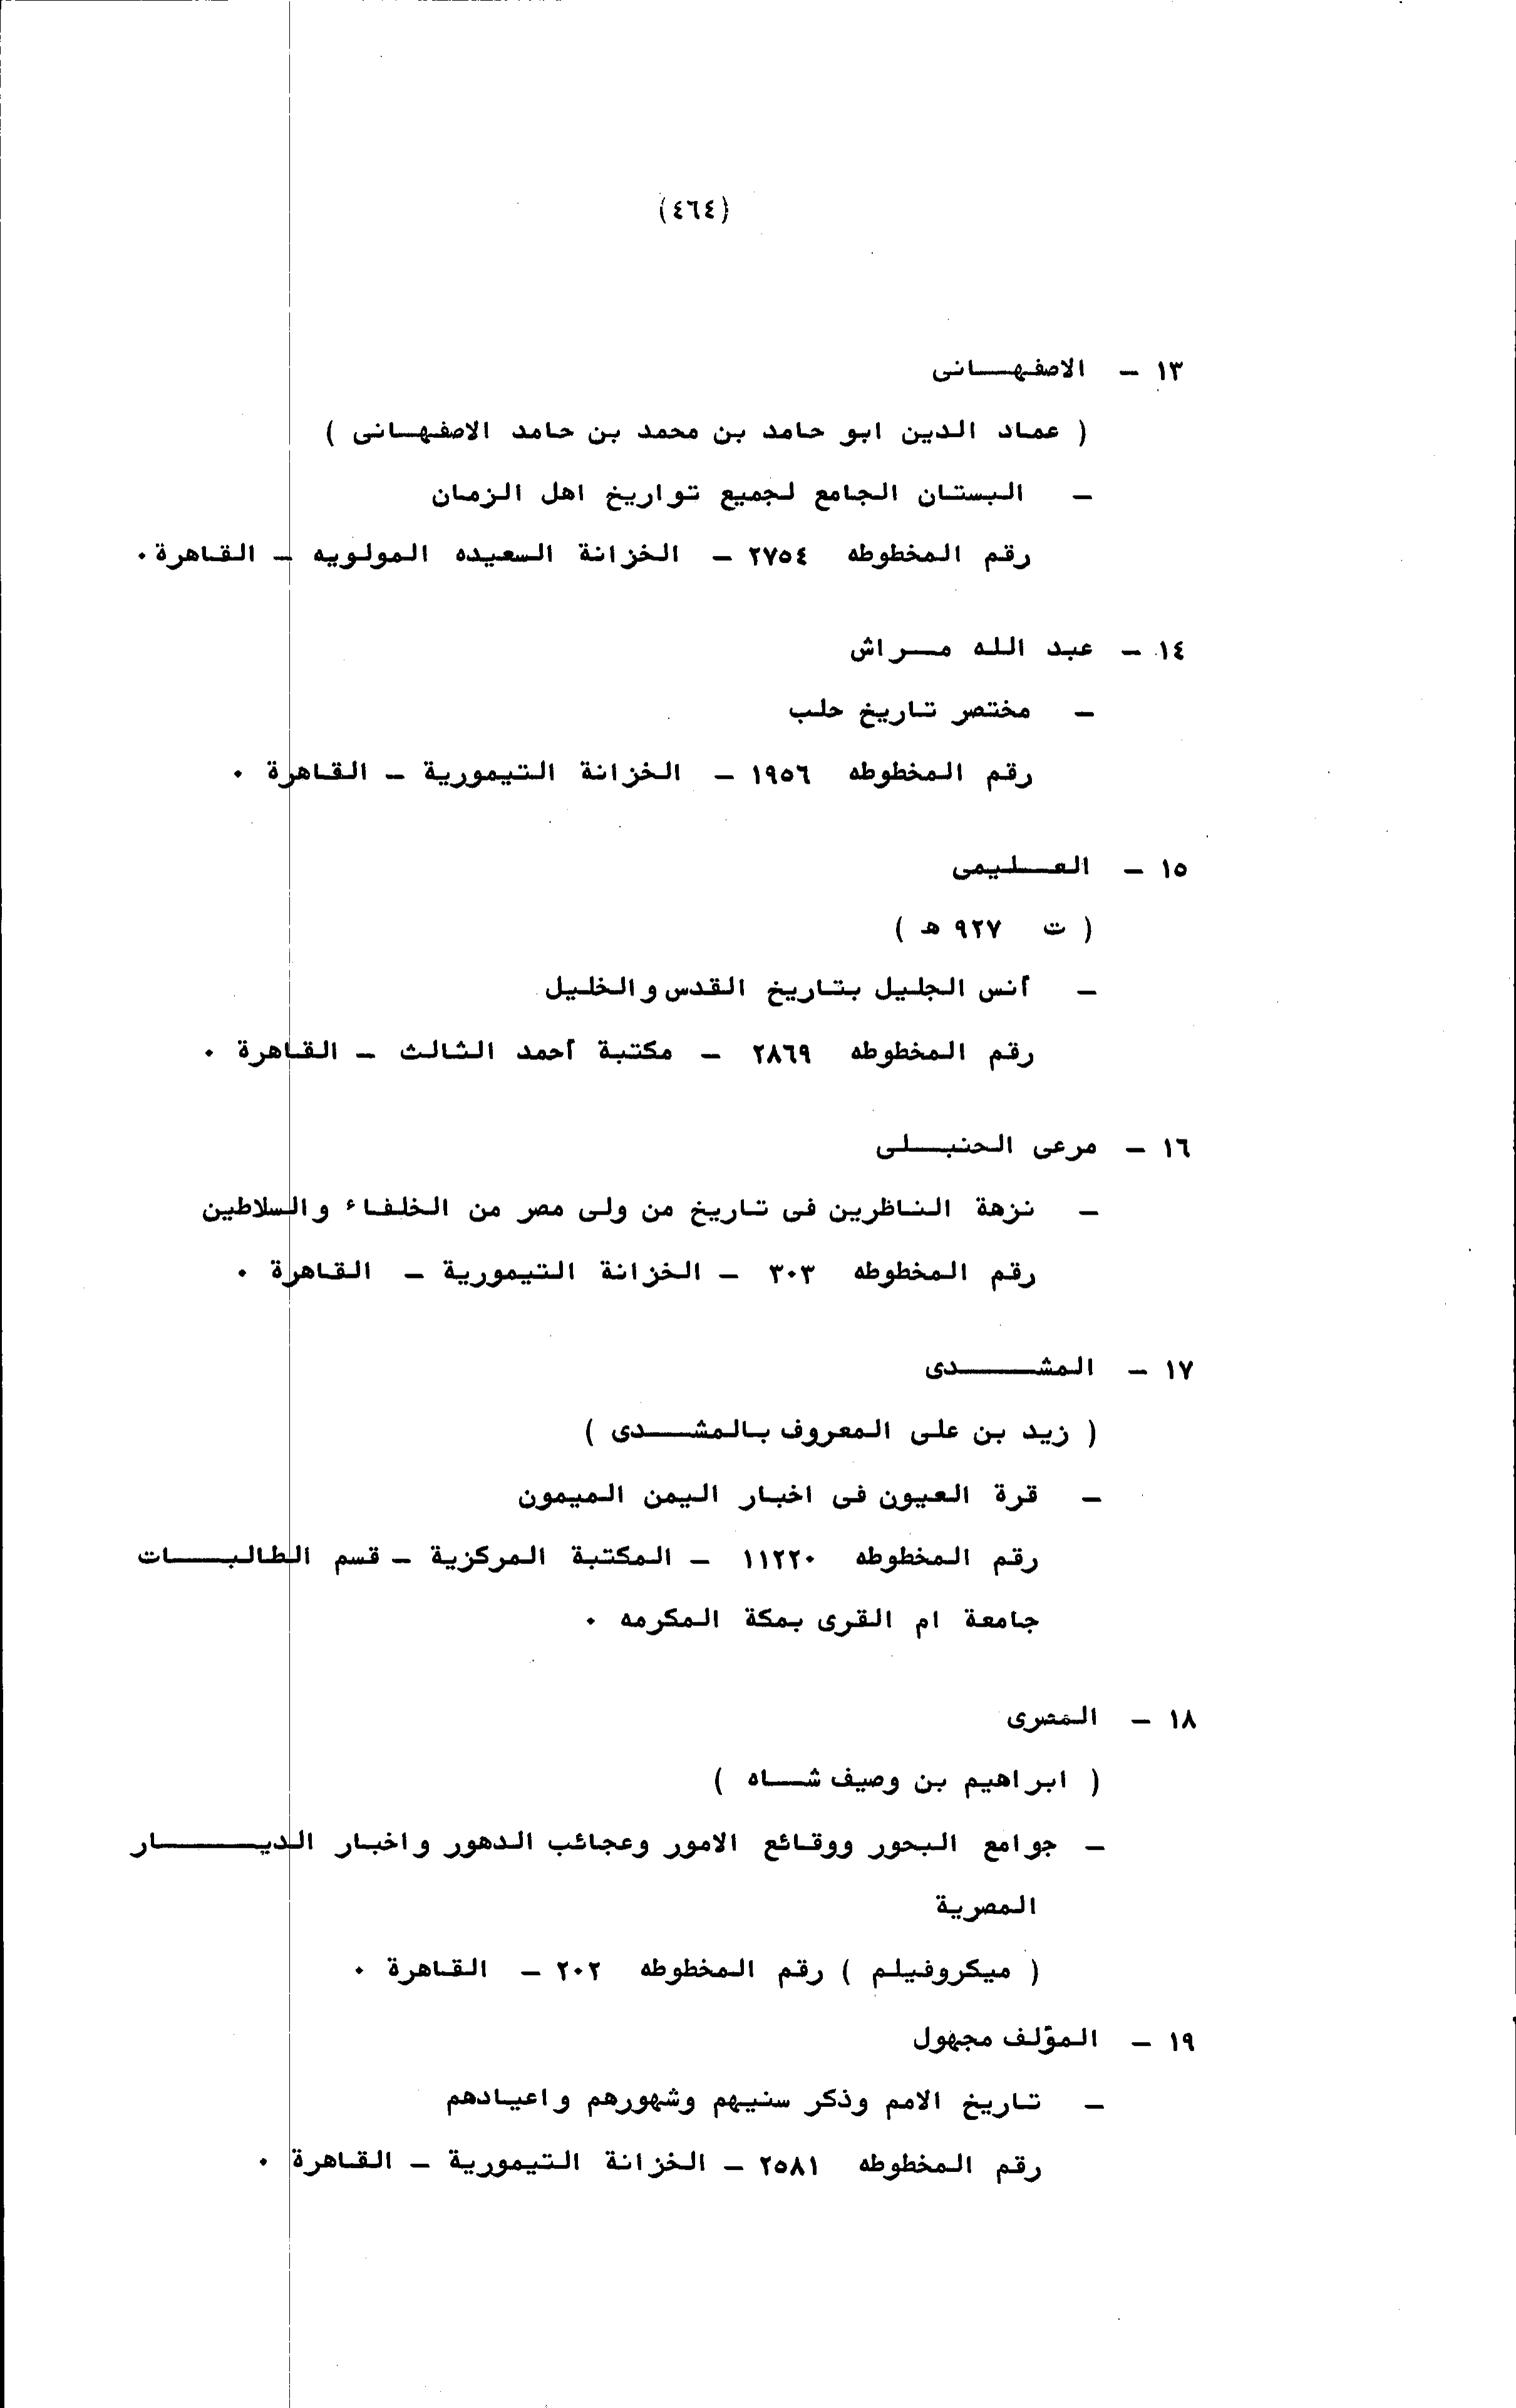 (٤٦٤)
١٣ – الاصفهانى
( عماد الدين ابو حامد بن محمد بن حامد الاصفهانى )
– البستان الجامع لجميع تواريخ اهل الزمان
رقم المخطوطه ٢٧٥٤ – الخزانة السعيده المولويه – القاهرة ٠
١٤ – عبد الله مراش
– مختصر تاريخ حلب
رقم المخطوطه ١٩٥٦ – الخزانة التيمورية – القاهرة ٠
١٥ – العليمى
( ت ٩٢٧ ه )
– أنس الجليل بتاريخ القدس والخليل
رقم المخطوطه ٢٨٦٩ – مكتبة أحمد الثالث – القاهرة ٠
١٦ – مرعى الحنبلى
– نزهة الناظرين فى تاريخ من ولى مصر من الخلفاء والسلاطين
رقم المخطوطه ٣٠٣ – الخزانة التيمورية – القاهرة ٠
١٧ – المشدى
( زيد بن على المعروف بالمشدى )
– قرة العيون فى اخبار اليمن الميمون
رقم المخطوطه ١١٢٢٠ – المكتبة المركزية – قسم الطالبات
جامعة ام القرى بمكة المكرمه ٠
١٨ – المصرى
( ابراهيم بن وصيف شاه )
– جوامع البحور ووقائع الامور وعجائب الدهور واخبار الديار
المصرية
( ميكروفيلم ) رقم المخطوطه ٢٠٢ – القاهرة ٠
١٩ – المؤلف مجهول
– تاريخ الامم وذكر سنيهم وشهورهم واعيادهم
رقم المخطوطه ٢٥٨١ – الخزانة التيمورية – القاهرة ٠